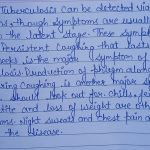 Tuberculosis can be detected via
s, though symptoms are usually
the latent stage. These sympt
Persistent Coughing that lasts
eeks is the major symptom of
ulosis. Production of phlegm alon
ring Coughing is another major s
should look out for. Chills, fe
tite and loss of weight are oth
oms. Night sweats and chest pain a
the disease.